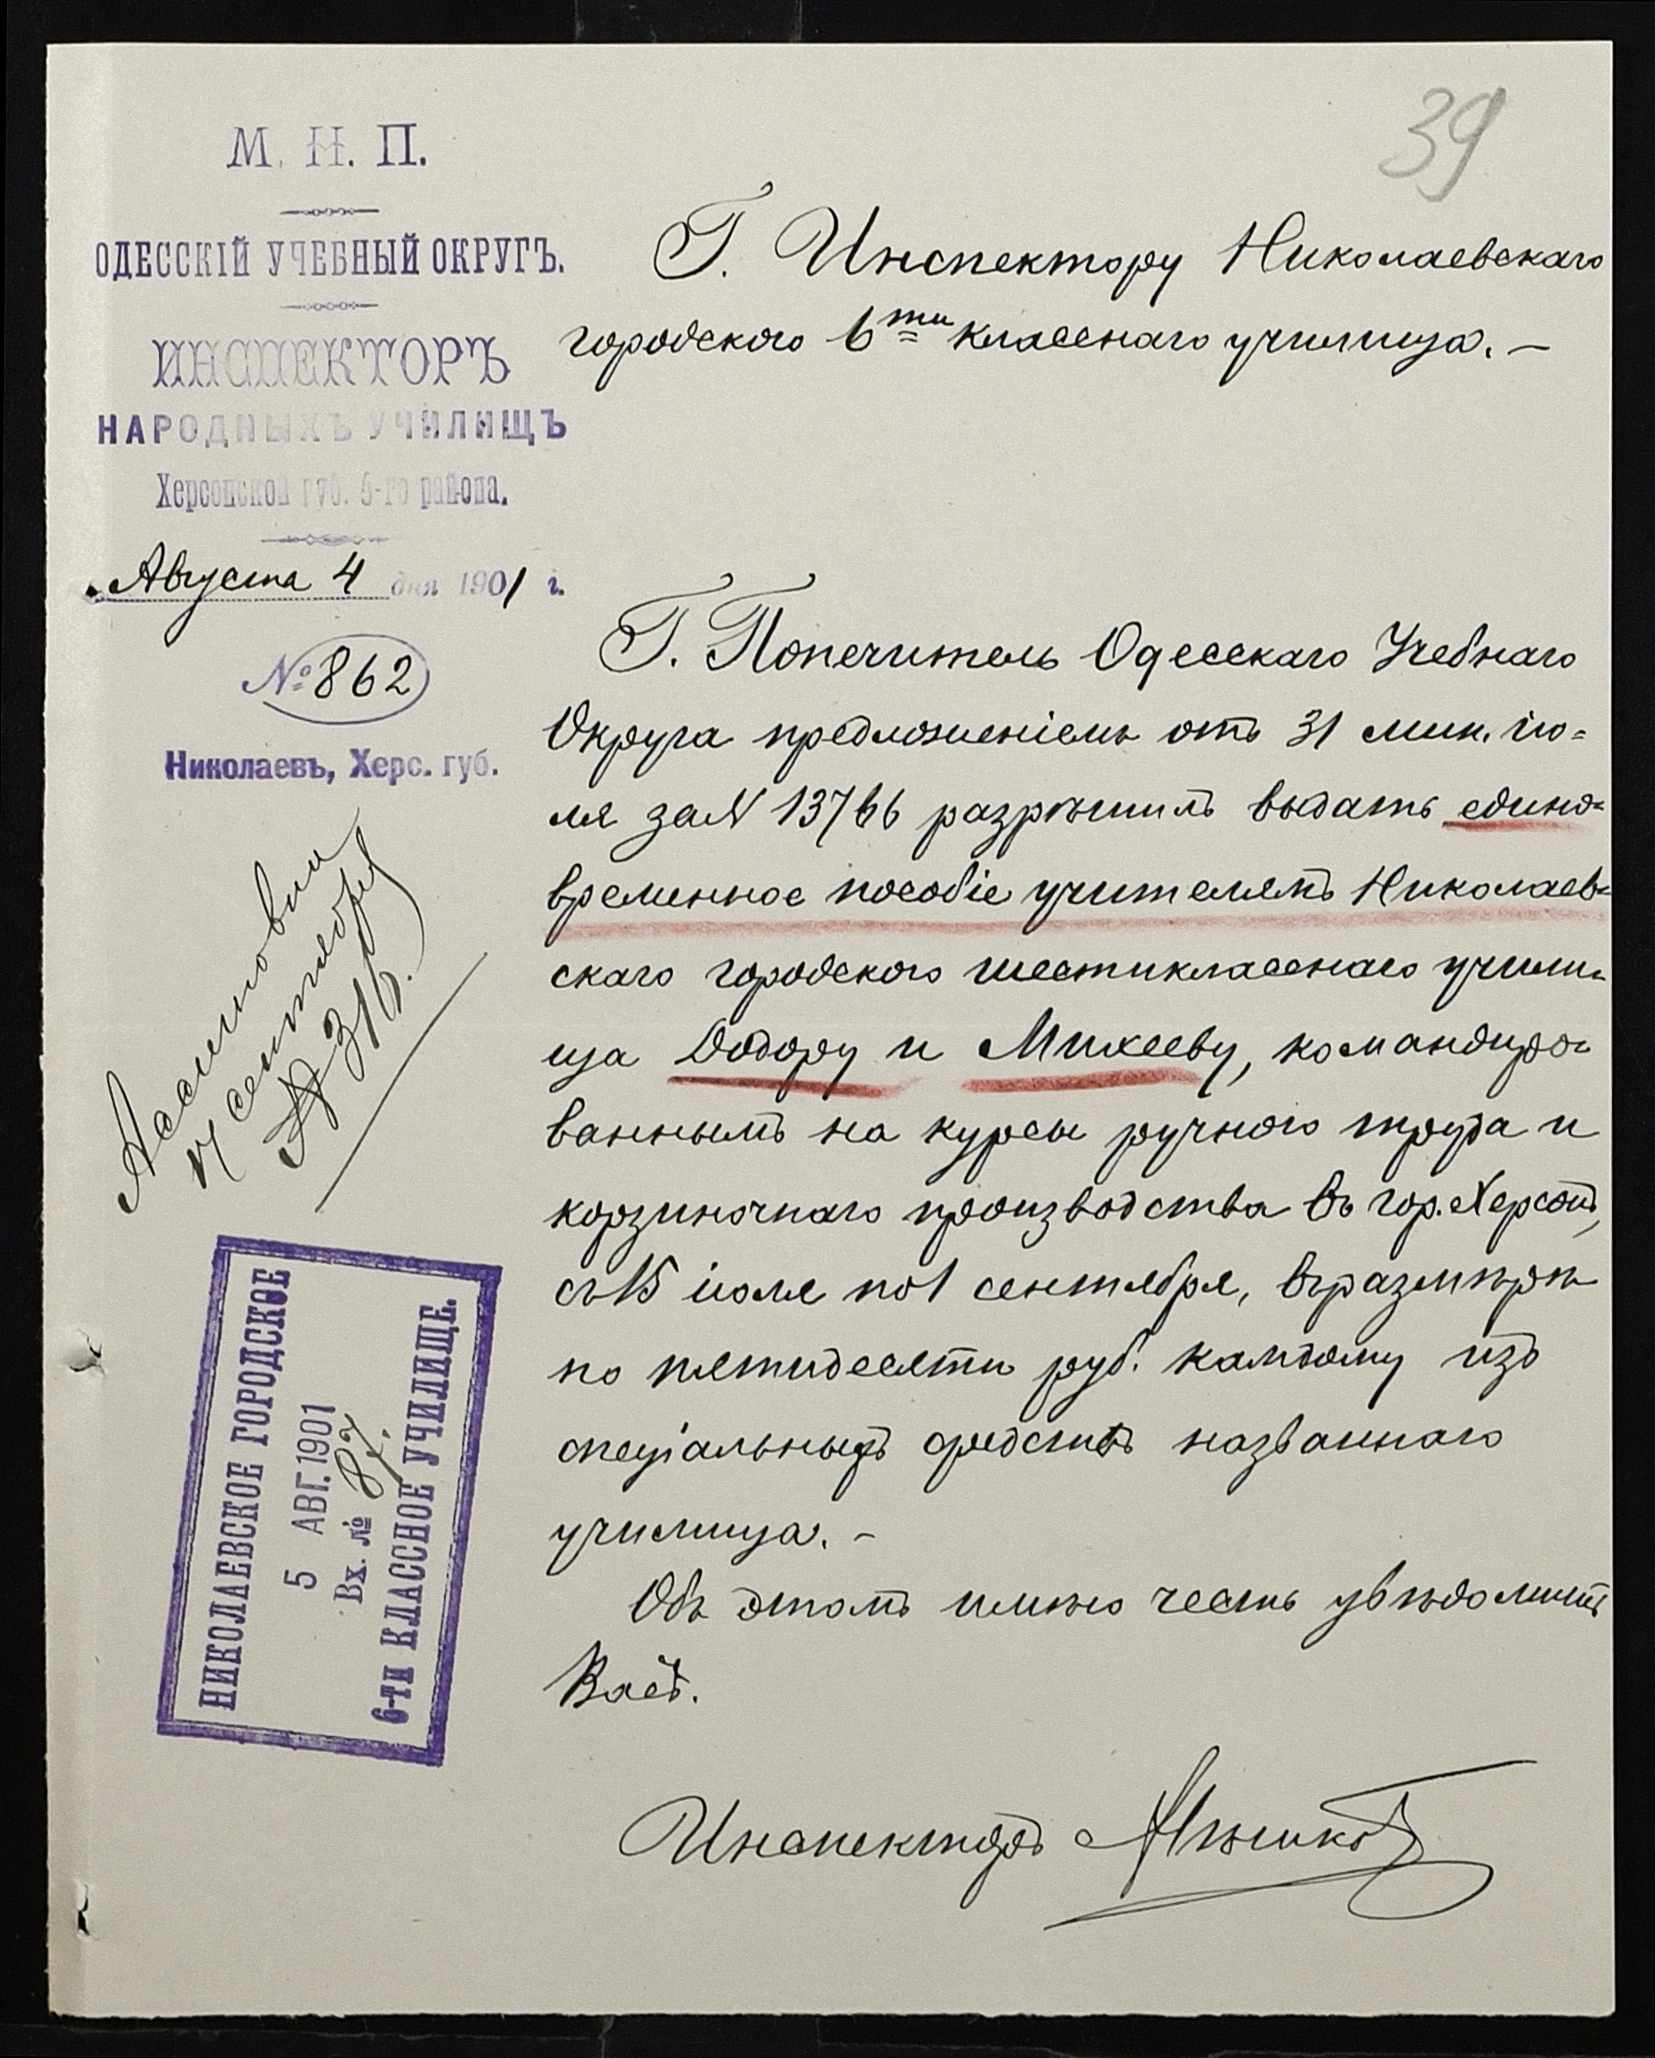 39
М. Н. П.
ОДЕССКІЙ УЧЕБНЫЙ ОКРУГЪ.
ИНСПЕКТОРЪ
НАРОДНЫХЪ УЧИЛИЩЪ
Херсонской губ. 5-го района.
Августа 4 дня 1901 г.
№ 862
Николаевъ, Херс. губ.
Г. Инспектору Николаевскаго
городского 6ти класснаго училища. —
Г. Попечитель Одесскаго Учебнаго
Округа предложеніемъ отъ 31 мин. ію=
ля за N 13766 разрѣшилъ выдать едино=
временное пособіе учителямъ Николаев=
скаго городского шестикласснаго учили=
ща Додору и Михееву, командиро=
ваннымъ на курсы ручного труда и
корзиночнаго производства въ гор. Херсонѣ,
съ 15 іюля по 1 сентября, въ размѣрѣ
по пятидесяти руб. каждому изъ
спеціальныхъ средствъ названнаго
училища. —
Объ этомъ имѣю честь увѣдомить
Васъ.
Инспекторъ
Ассигновки
сентября
№ 316.
НИКОЛАЕВСКОЕ ГОРОДСКОЕ
5 АВГ. 1901
Вх. №
6-ТИ КЛАССНОЕ УЧИЛИЩЕ.